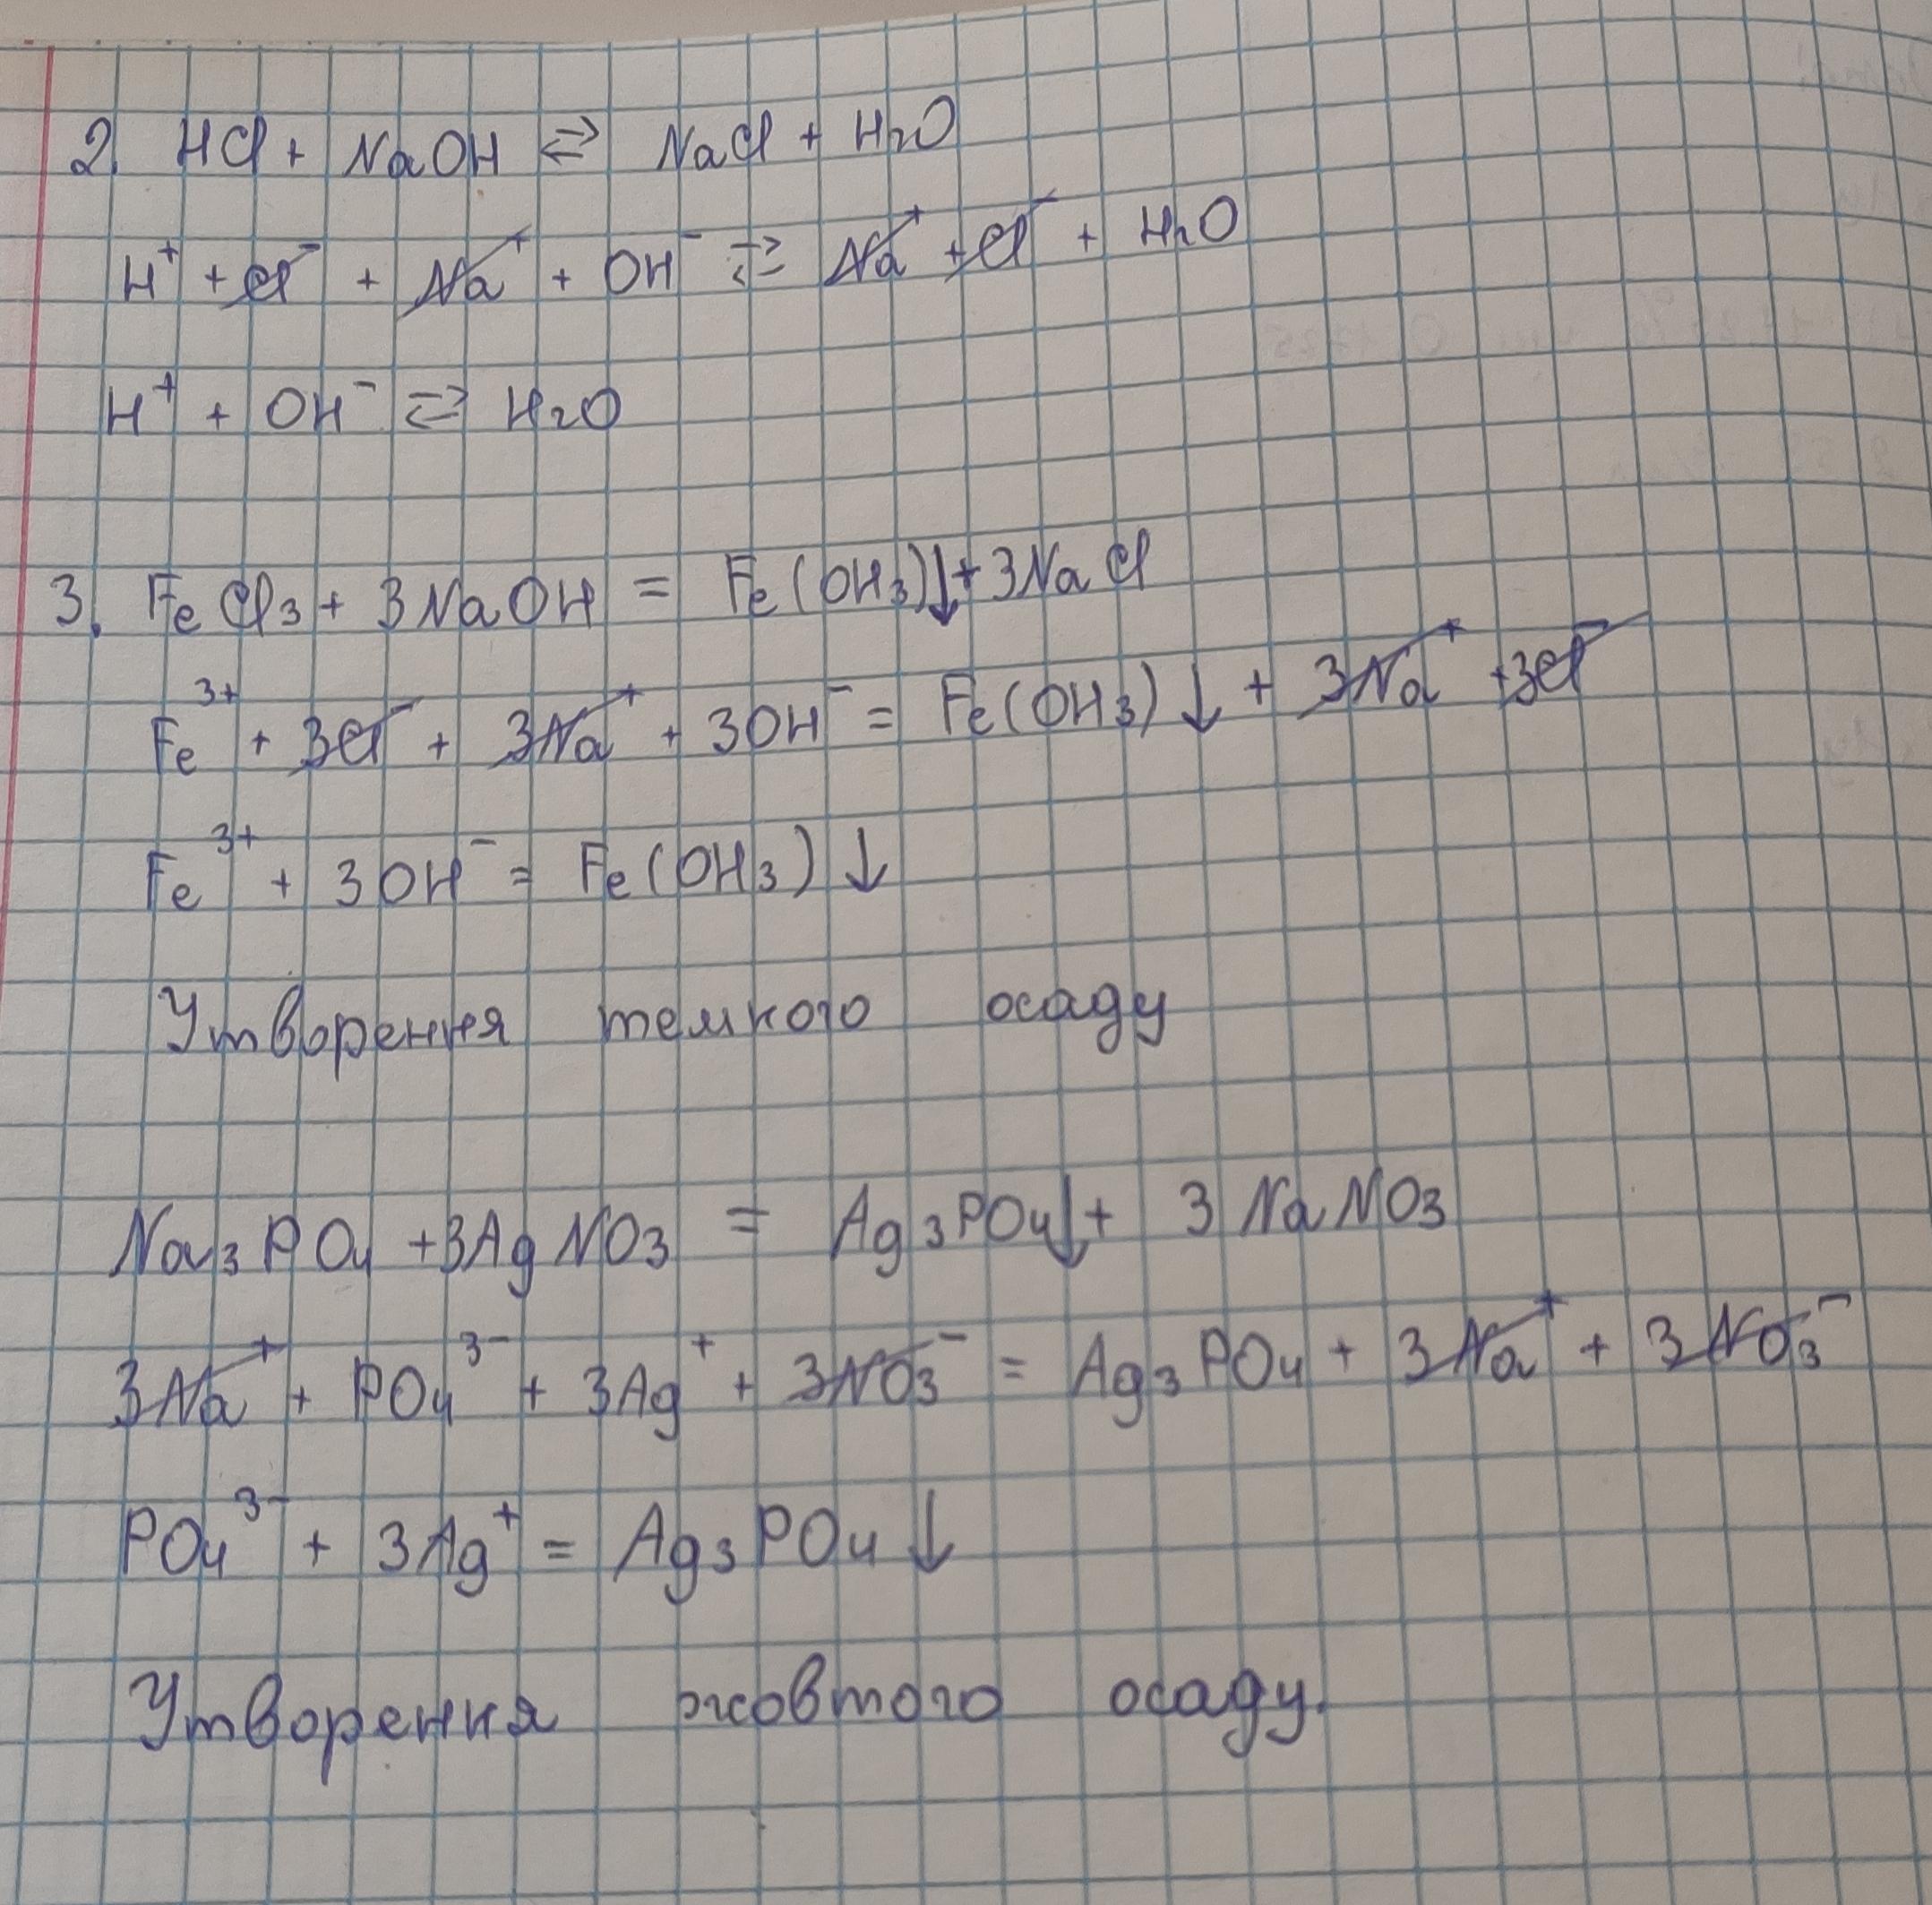 2. HCl + NaOH ⇄ NaCl + H₂O
H⁺ + Cl⁻ + Na⁺ + OH⁻ ⇄ Na⁺ + Cl⁻ + H₂O
H⁺ + OH⁻ ⇄ H₂O
3. FeCl₃ + 3NaOH = Fe(OH₃)↓ + 3NaCl
Fe³⁺ + 3Cl⁻ + 3Na⁺ + 3OH⁻ = Fe(OH₃)↓ + 3Na⁺ + 3Cl⁻
Fe³⁺ + 3OH⁻ = Fe(OH₃)↓
Утворення темного осаду
Na₃PO₄ + 3AgNO₃ = Ag₃PO₄↓ + 3NaNO₃
3Na⁺ + PO₄³⁻ + 3Ag⁺ + 3NO₃⁻ = Ag₃PO₄ + 3Na⁺ + 3NO₃⁻
PO₄³⁻ + 3Ag⁺ = Ag₃PO₄↓
Утворення жовтого осаду.